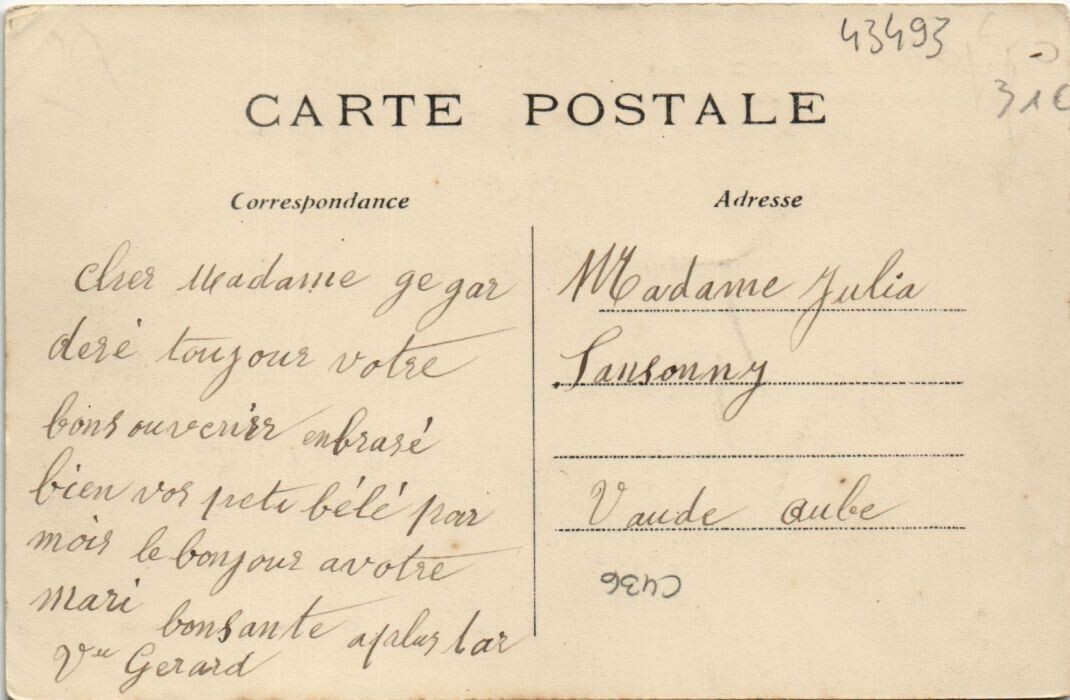 43493
31€
CARTE POSTALE
Correspondance
Adresse
cher Madame ge gar
deré toujour votre
bonsouvenirr enbrasé
bien vos peti bélé par
mois le bonjour avotre
mari bonsante aplus tar
Vve Gerard
Madame Julia
Sansonny
Vaude aube
C436